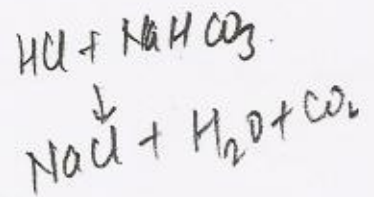 HCl + NaHCO3.
↓
NaCl + H2O + CO2